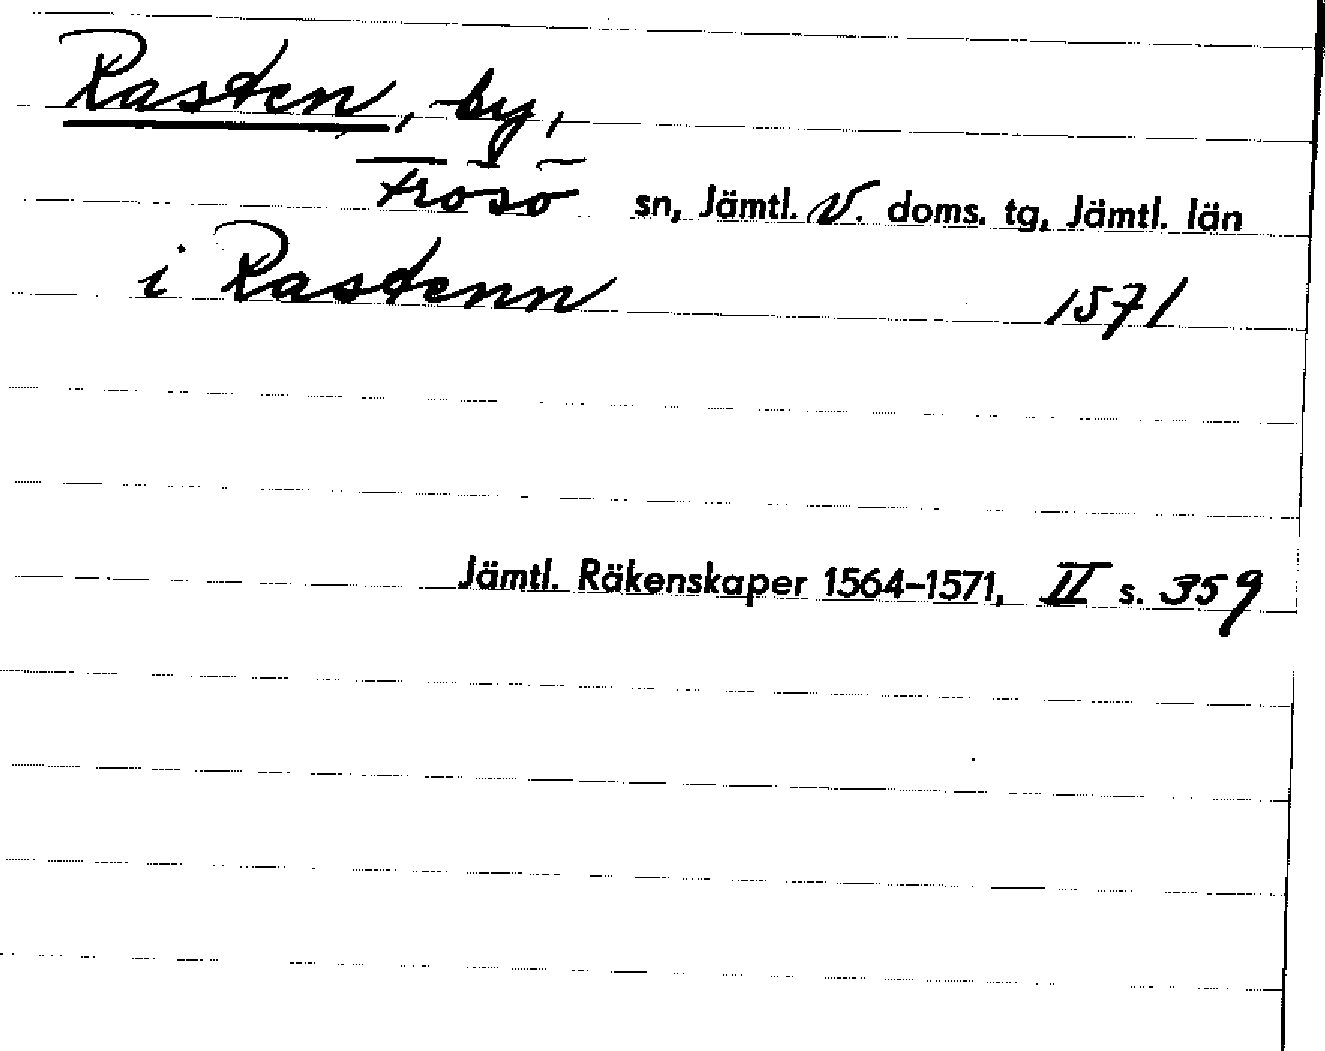 Rasten, by,
Frösö sn, Jämtl. V. doms. tg, Jämtl. län
i Rastenn 1571
Jämtl. Räkenskaper 1564-1571, II s. 359